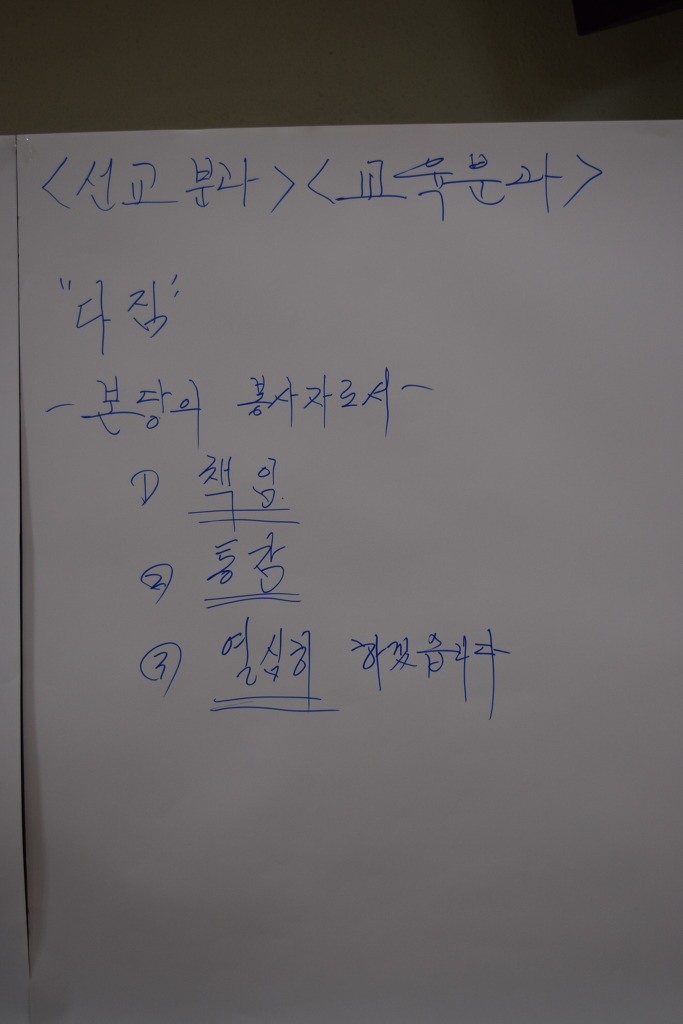 <선교 분과> <교육분과>
"다짐"
- 본당의 봉사자로서 -
① 책임
②
③ 열심히 하겠읍니다